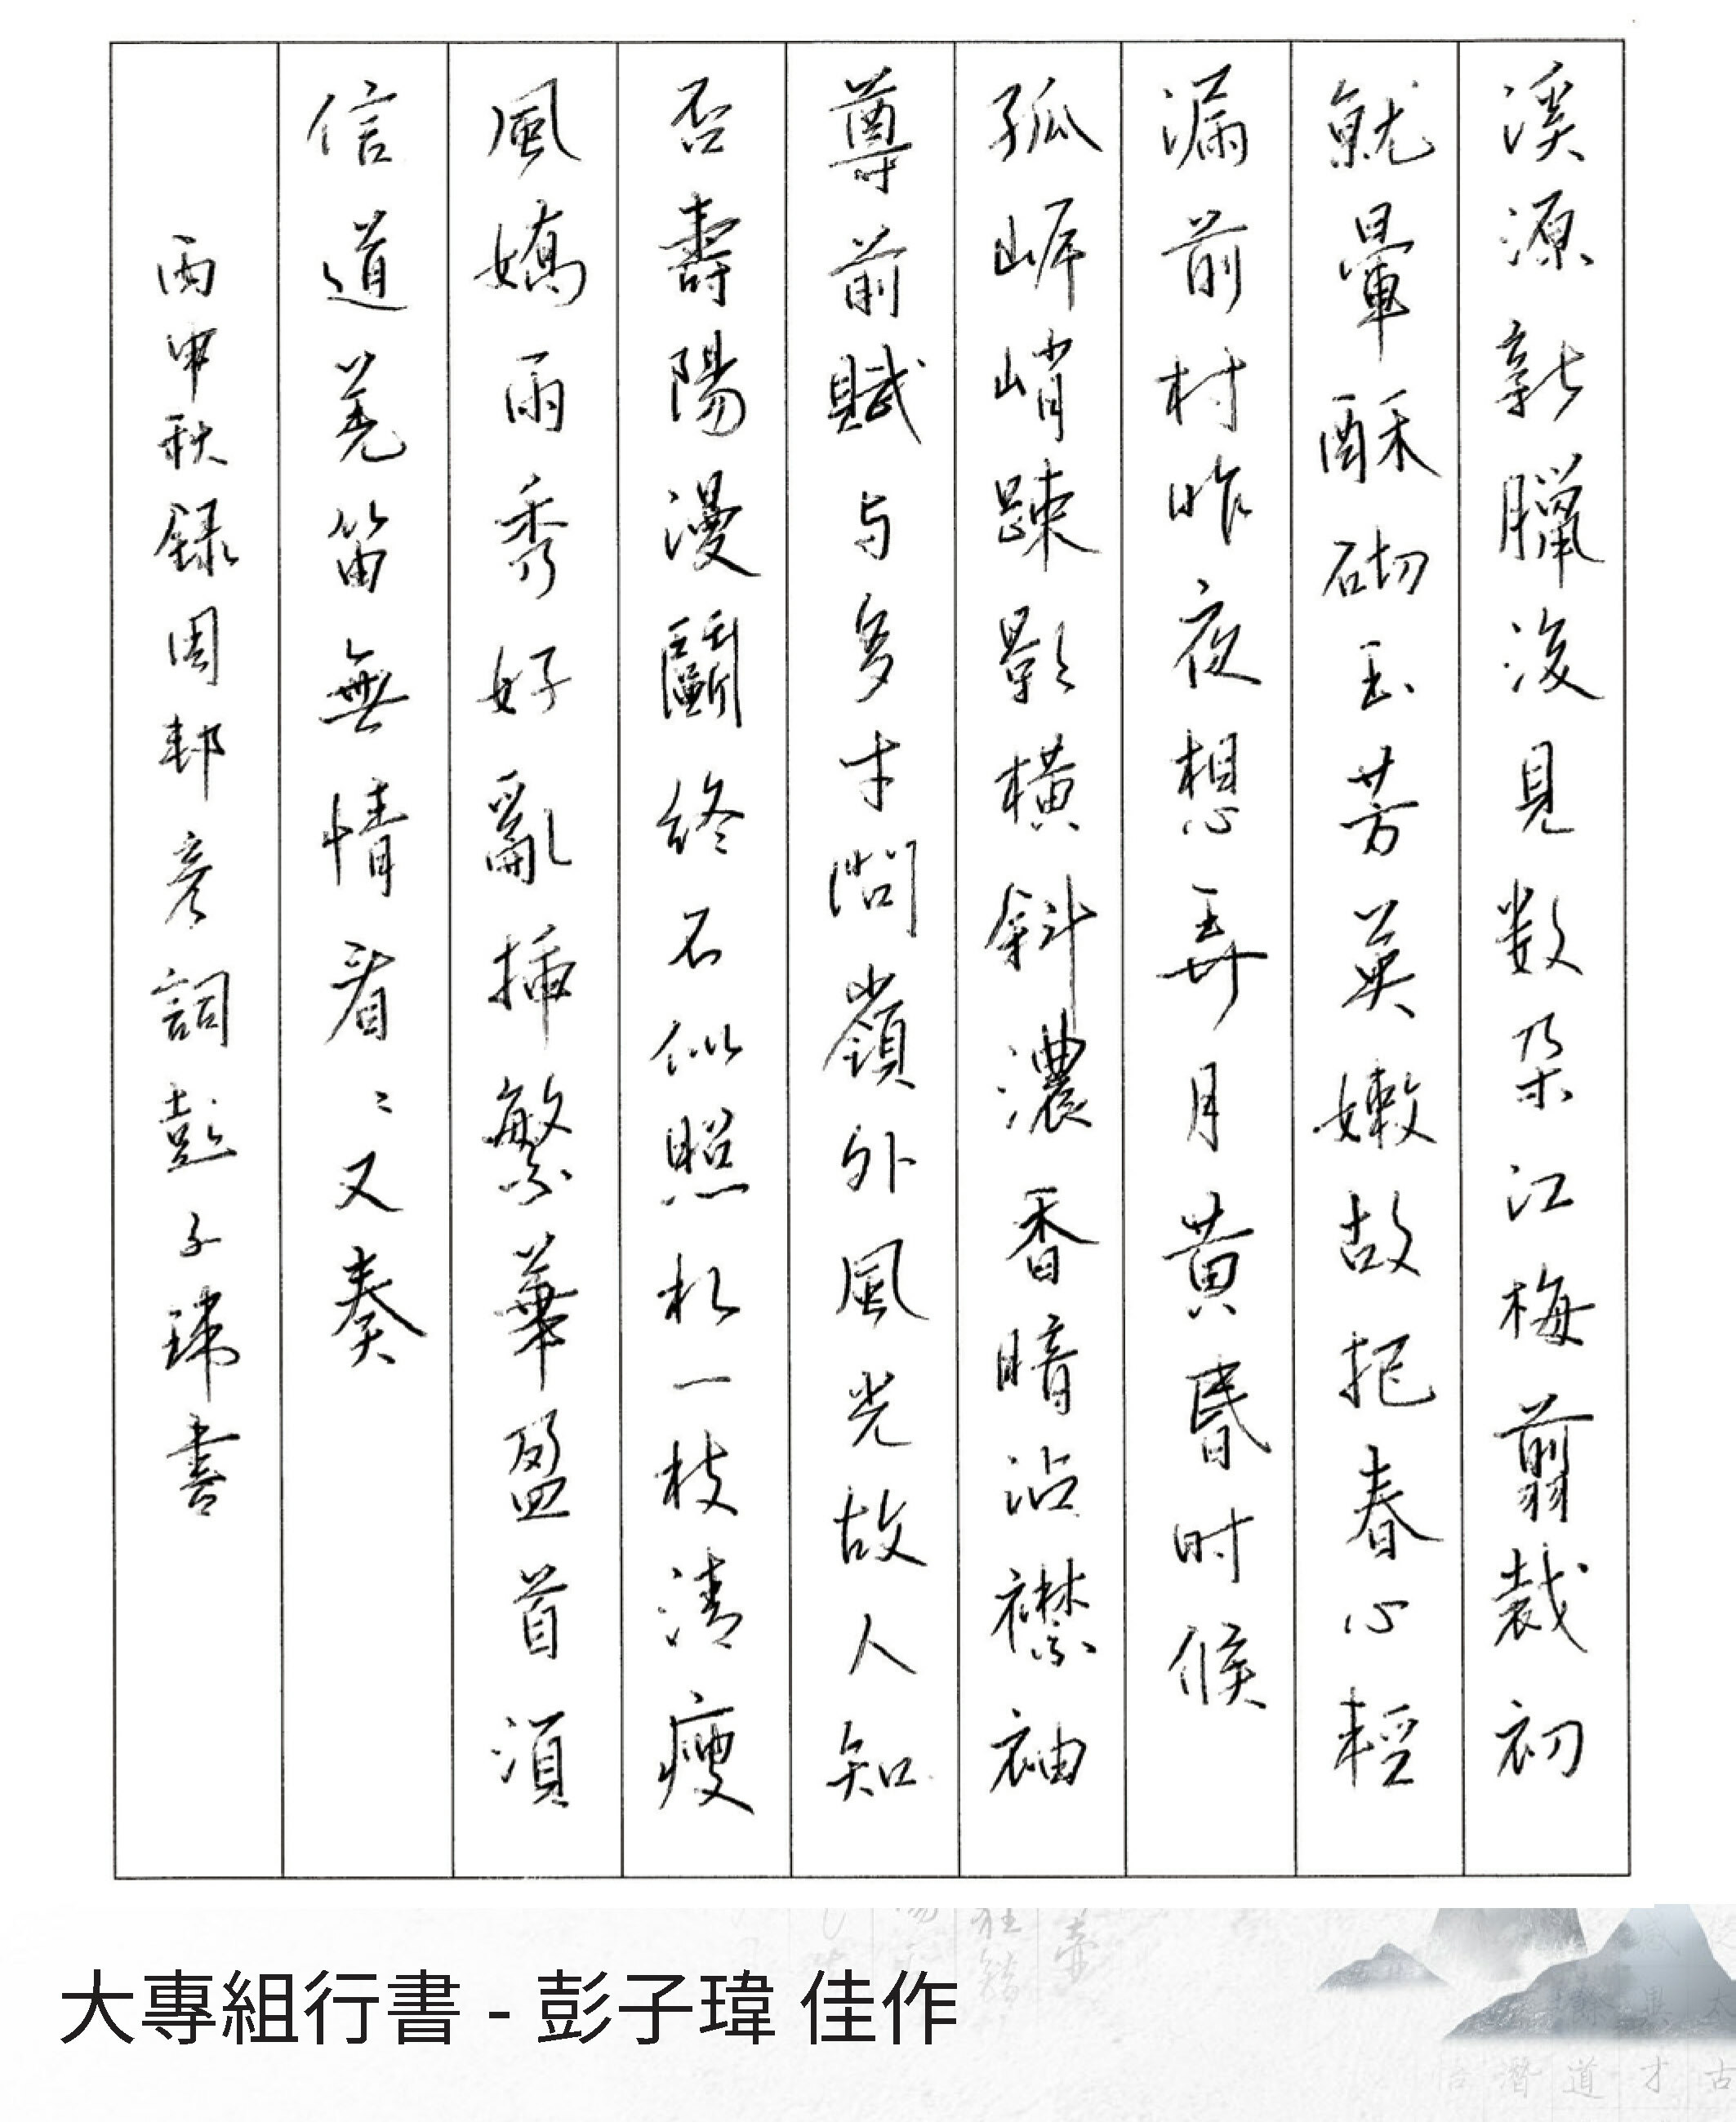 溪源新臘後見数朶江梅翦裁初
就暈酥砌玉芳英嫩故把春心輕
漏前村昨夜想弄月黄昏时候
孤岸峭踈影橫斜濃香暗沾襟袖
尊前賦与多才問嶺外風光故人知
否壽陽漫鬭終不似照水一枝清瘦
風嬌雨秀好亂插繁華盈首須
信道羗笛無情看〻又奏
丙申秋録周邦彦詞彭子瑋書
大專組行書 - 彭子瑋 佳作